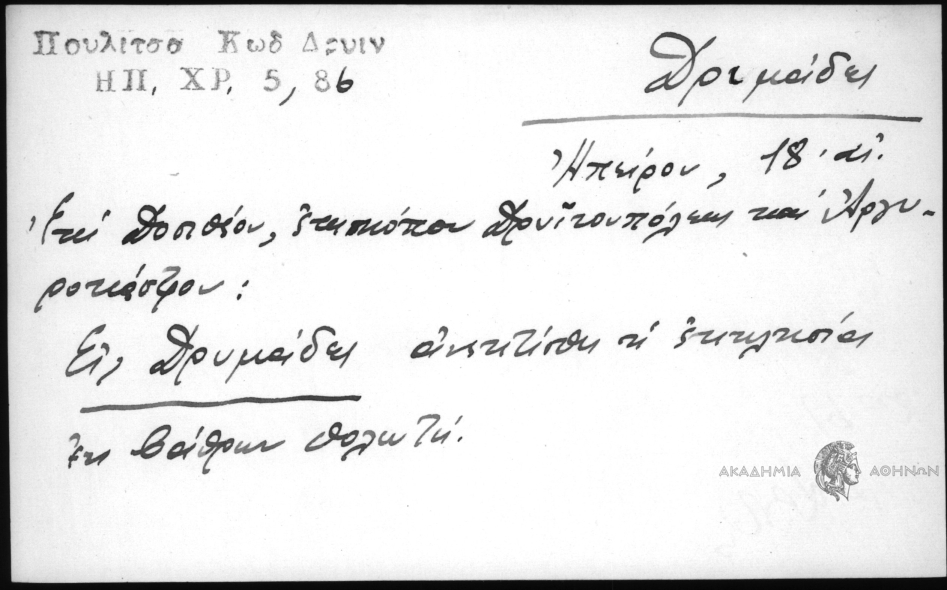 Πουλιτσα Κωδ Δρυιν
ΗΠ. ΧΡ. 5, 86
Δρυμάδες
Ἠπείρου, 18 · αἰ.
Ἐπί Δοσιθέου, ἐπισκόπου Δρυϊνουπόλεως καί Ἀργυ-
ροκάστρου:
Εἰς Δρυμάδες ἀνεκτίσθη ἡ ἐκκλησία
ἐκ βάθρων θολωτή.
ΑΚΑΔΗΜΙΑ ΑΘΗΝΩΝ